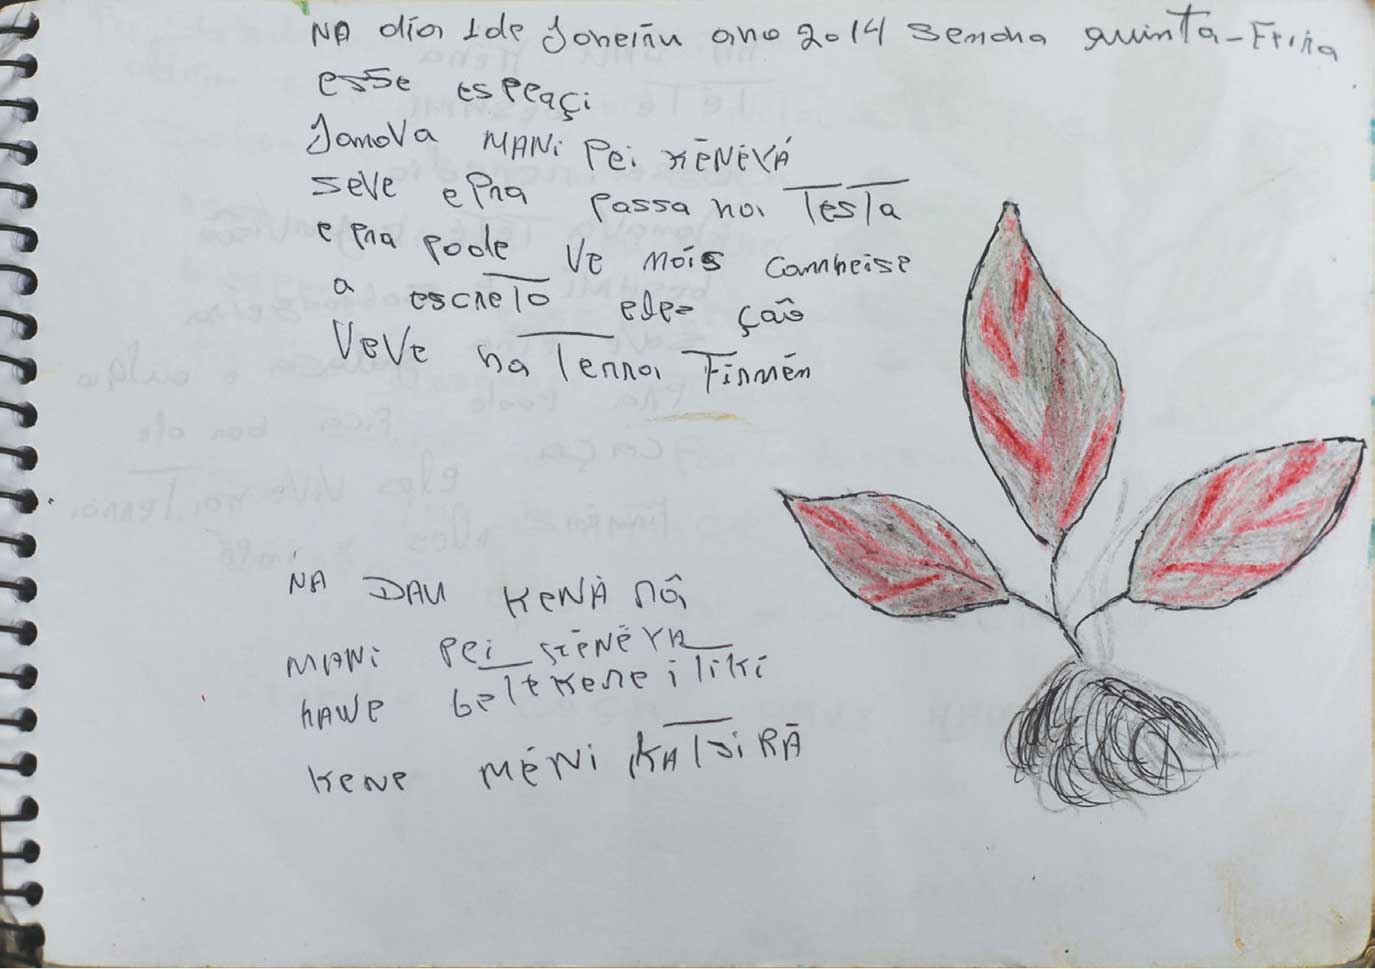 NA día 1de Joneiñu ano 2014 Sendha quinta-Feria
esse espeaçi
Janova MANi Pei KĒNĒYÁ
seve ePra passa noi Testa
e pra pode Ve mois comheise
a escreto eles ção
VeVe na Terra, Firmēn
NA DAU KENÀ nô
MANi Pei KĒNĒYA
hAWe kene i liki
Kene MÉNi KATSi RÃ